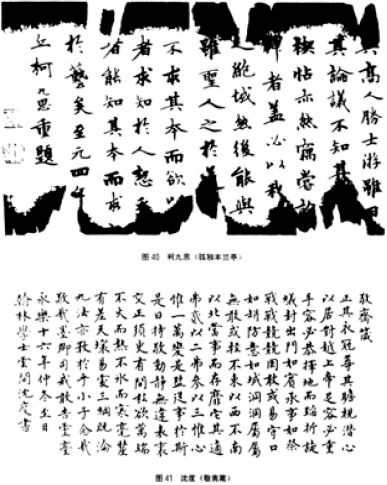 與高人勝士游雖日
其論議不知其
禊帖亦然
禪者蓋必以我
絕域然後能與
雖聖人之於
不求其本而欲以
者求知於人恐
有能知其本而求
於藝矣至元四年
丘柯九思重題
图 40 柯九思《孤独本兰亭》
敬齋箴
正其衣冠尊其瞻視潛心
以居對越上帝足容必重
手容必恭擇地而蹈折旋
蟻封出門如賓承事如祭
戰戰兢兢罔敢或易守口
如缾防意如城洞洞屬屬
無敢或輕不東以西不南
以北當事而存靡它其適
弗貳以二弗參以三惟心
惟一萬變是監從事於斯
是曰持敬動靜無違表裏
交正須臾有間私欲萬端
不火而熱不冰而寒毫釐
有差天壤易處三綱既淪
九法亦斁於乎小子念哉
敬哉墨卿司戒敢告靈臺
永樂十六年仲冬至日
翰林學士雲間沈度書
图 41 沈度《敬斋箴》